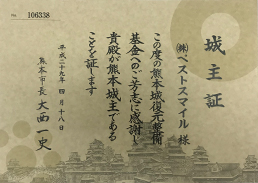 No. 106338
城主証
㈱ベストスマイル 様
この度の熊本城復元整備
基金へのご立志に感謝し
貴殿が熊本城主である
ことを証します
平成二十九年 四月十八日
熊本市長 大西一史